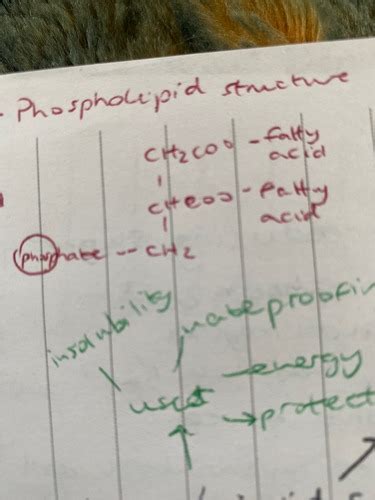 - Phospholipid structure
CH2COO - fatty
acid
CHCOO - Fatty
acid
phosphate -- CH2
insolubility
waterproofin
uses
energy
→protect